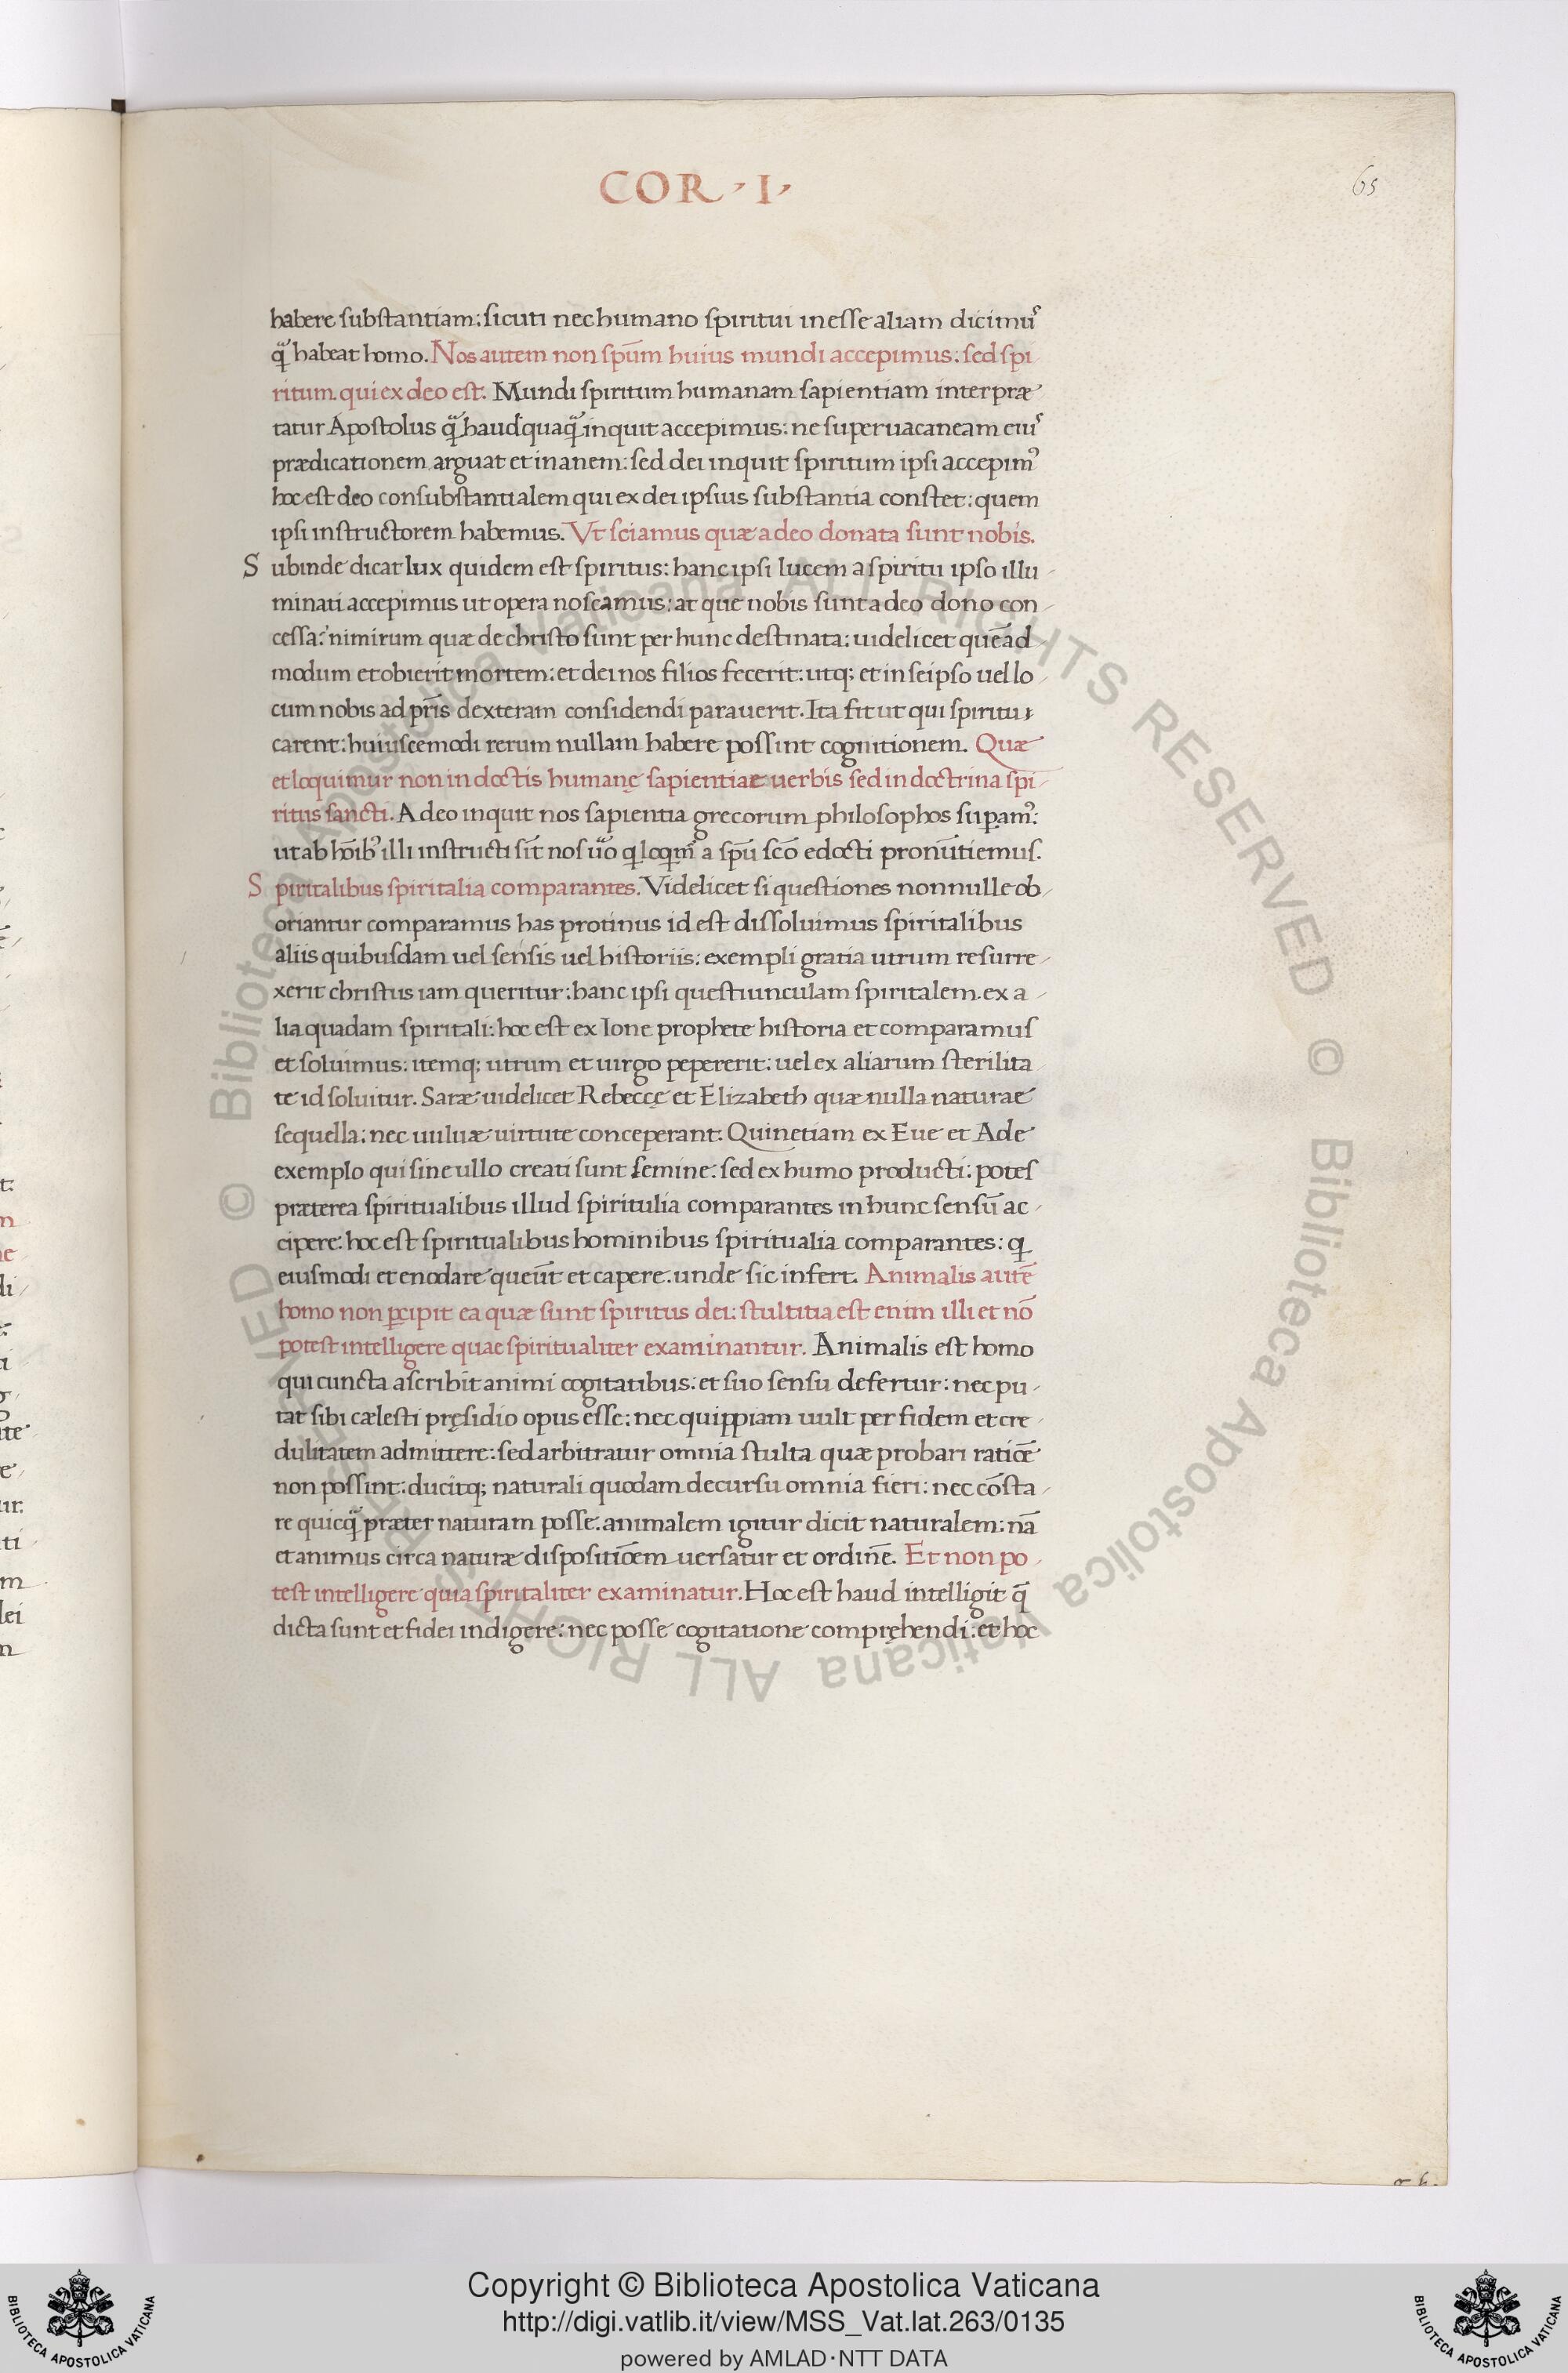 COR · I ·
65
habere substantiam: sicuti nec humano spiritui inesse aliam dicimus
q̃ habeat homo. Nos autem non spūm huius mundi accepimus: sed spi
ritum qui ex deo est. Mundi spiritum humanam sapientiam interpræ
tatur Apostolus q̃ haudquaq̃ inquit accepimus: ne superuacaneam eius
prædicationem arguat et inanem: sed dei inquit spiritum ipsi accepim᾿
hoc est deo consubstantialem qui ex dei ipsius substantia constet: quem
ipsi instructorem habemus. Vt sciamus quæ a deo donata sunt nobis.
Subinde dicat lux quidem est spiritus: hanc ipsi lucem a spiritu ipso illu
minati accepimus ut opera noscamus: at que nobis sunt a deo dono con
cessa: nimirum quæ de christo sunt per hunc destinata: uidelicet quēad
modum et obierit mortem: et dei nos filios fecerit: utq; et in seipso uel lo
cum nobis ad pr̄is dexteram considendi parauerit. Ita fit ut qui spiritu
carent: huiuscemodi rerum nullam habere possint cognitionem. Quæ
et loquimur non in doctis humanę sapientiae uerbis sed in doctrina spi
ritus sancti. Adeo inquit nos sapientia grecorum philosophos suꝑam᾿:
ut ab hoīb᾿ illi instructi sīt nos u̅o q loqm᾿ a spū scō edocti pronūtiemus.
Spiritalibus spiritalia comparantes. Videlicet si questiones nonnulle ob
oriantur comparamus has protinus id est dissoluimus spiritalibus
aliis quibusdam uel sensis uel historiis: exempli gratia utrum resurre
xerit christus iam queritur: hanc ipsi questiunculam spiritalem ex a
lia quadam spiritali: hoc est ex Ione prophete historia et comparamus
et soluimus: itemq; utrum et uirgo pepererit: uel ex aliarum sterilita
te id soluitur. Saræ uidelicet Rebeccę et Elizabeth quæ nulla naturae
sequella: nec uuluæ uirtute conceperant. Quinetiam ex Eue et Ade
exemplo qui sine ullo creati sunt semine: sed ex humo producti: potes
præterea spiritualibus illud spiritulia comparantes in hunc sensū ac
cipere: hoc est spiritualibus hominibus spiritualia comparantes: q
eiusmodi et enodare queūt et capere. unde sic infert. Animalis autē
homo non ꝑcipit ea quæ sunt spiritus dei: stultitia est enim illi et nō
potest intelligere quae spiritualiter examinantur. Animalis est homo
qui cuncta ascribit animi cogitatibus: et suo sensu defertur: nec pu
tat sibi cælesti pręsidio opus esse: nec quippiam uult per fidem et cre
dulitatem admittere: sed arbitratur omnia stulta quæ probari ratiōe
non possint: ducitq; naturali quodam decursu omnia fieri: nec cōsta
re quicq̃ præter naturam posse. animalem igitur dicit naturalem: nā
et animus circa naturæ dispositiōem uersatur et ordinē. Et non po
test intelligere quia spiritaliter examinatur. Hoc est haud intelligit q̄
dicta sunt et fidei indigere: nec posse cogitatione compręhendi: et hoc
© Biblioteca Apostolica Vaticana ALL RIGHTS RESERVED © Biblioteca Apostolica Vaticana ALL RIGHTS RESERVED
Copyright © Biblioteca Apostolica Vaticana
http://digi.vatlib.it/view/MSS_Vat.lat.263/0135
powered by AMLAD·NTT DATA
BIBLIOTECA APOSTOLICA VATICANA
BIBLIOTECA APOSTOLICA VATICANA